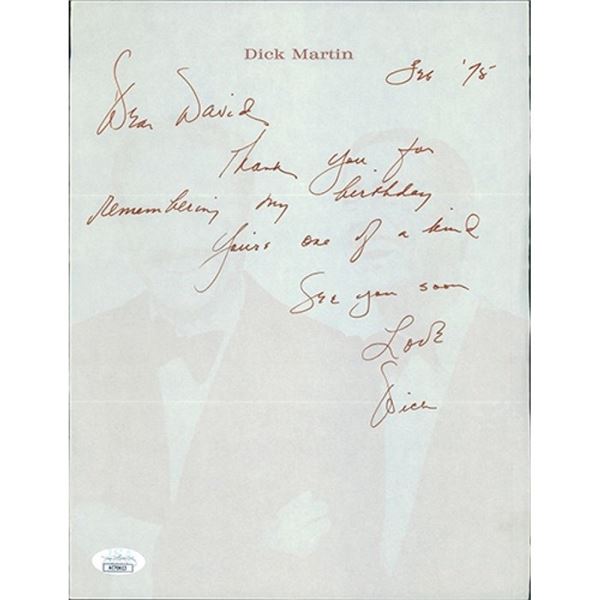 Dick Martin
Feb '75
Dear David,
Thank you for
remembering my birthday
Youre one of a kind
See you soon
Love
Dick